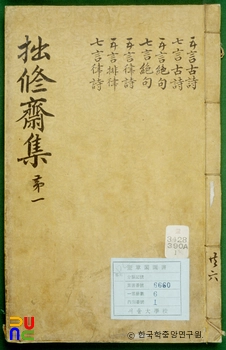 五言古詩
七言古詩
五言絶句
七言絶句
五言律詩
五言排律
七言律詩
拙修齋集 苐一
共六
6
1
한국학중앙연구원